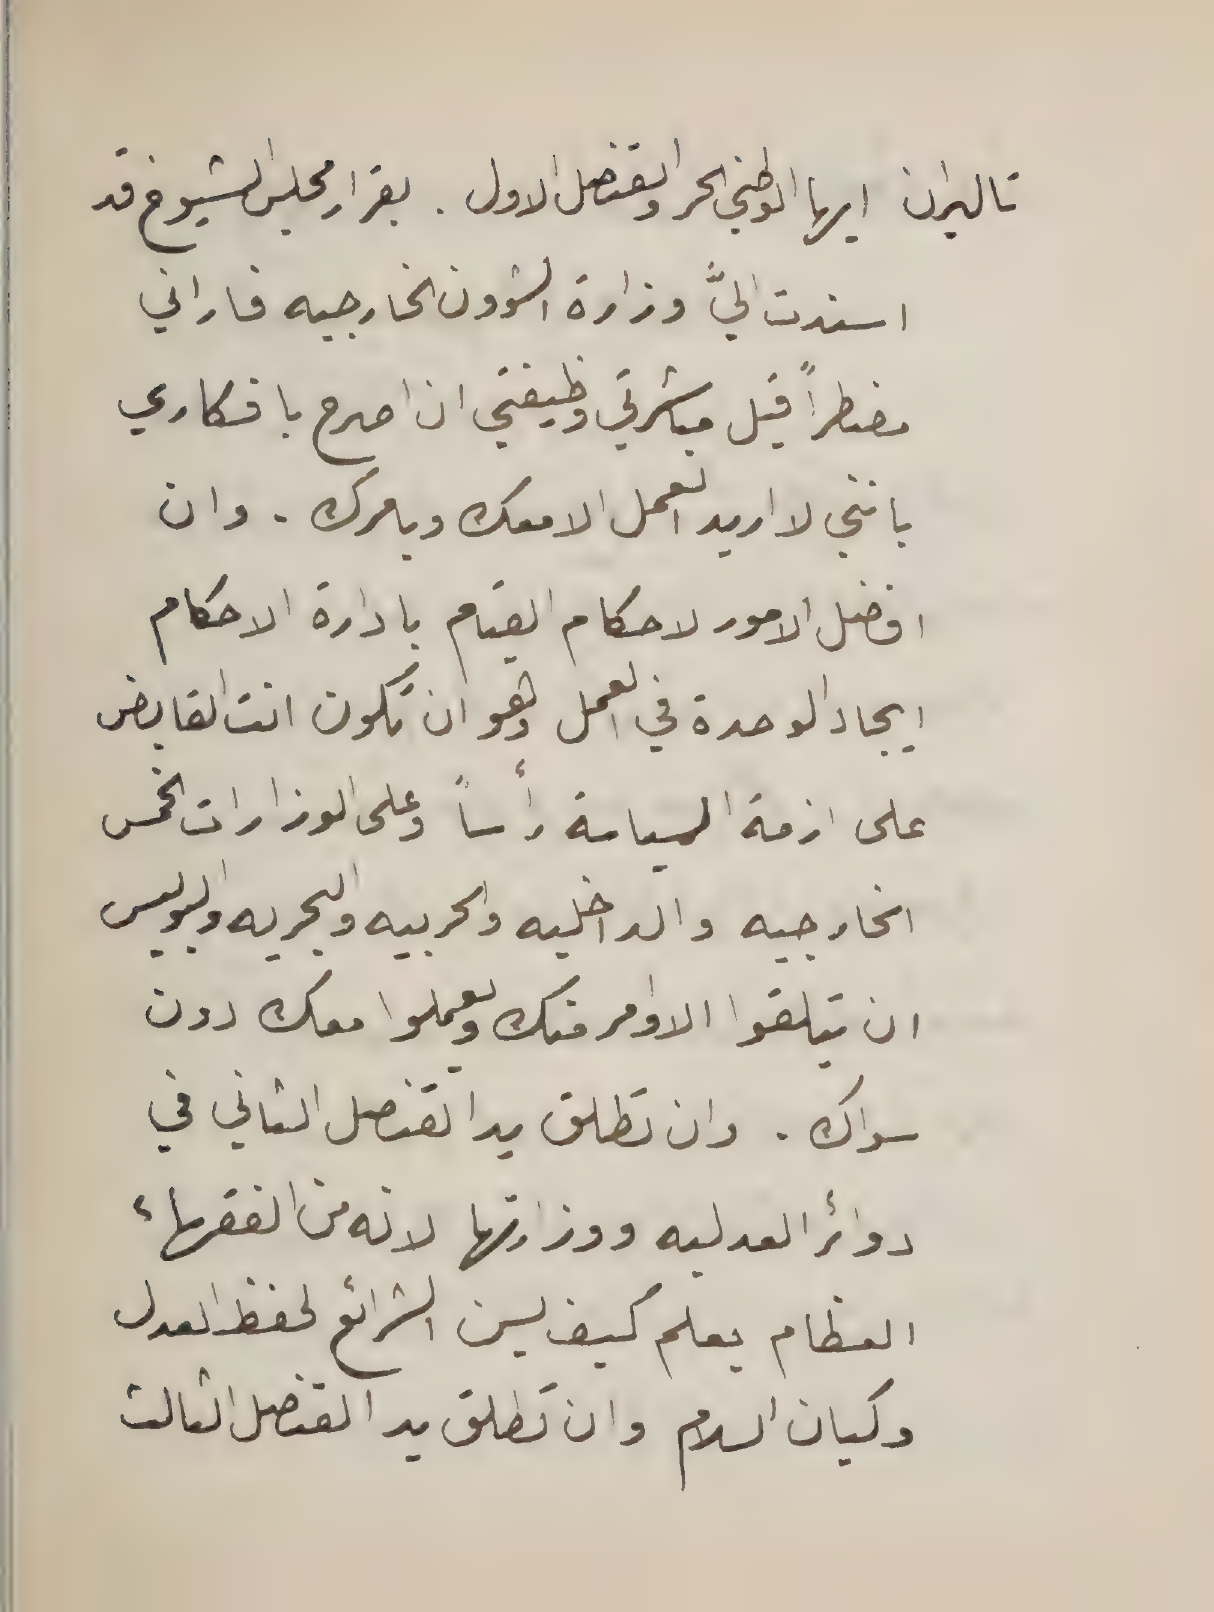 تاليران ايها الوطني الحر والقنصل الاول . بقرار مجلس الشيوخ قد
اسندت اليَّ وزارة الشؤون الخارجيه فاراني
مضطراً قبل مباشرتي وظيفتي ان اصرح بافكاري
بانني لا اريد العمل الا معك وبامرك . وان
افضل الامور لاحكام القيام بادارة الاحكام
ايجاد الوحدة في العمل وهو ان تكون انت القابض
على ازمة السياسة رأساً وعلى الوزارات الخمس
الخارجيه والداخليه والحربيه والبحريه والبوليس
ان يتلقوا الاوامر منك ويعملوا معك دون
سواك . وان تطلق يد القنصل الثاني في
دوائر العدليه ووزارتها لانه من الفقهاء
العظام يعلم كيف يسن الشرائع لحفظ العدل
وكيان السلام وان تطلق يد القنصل الثالث